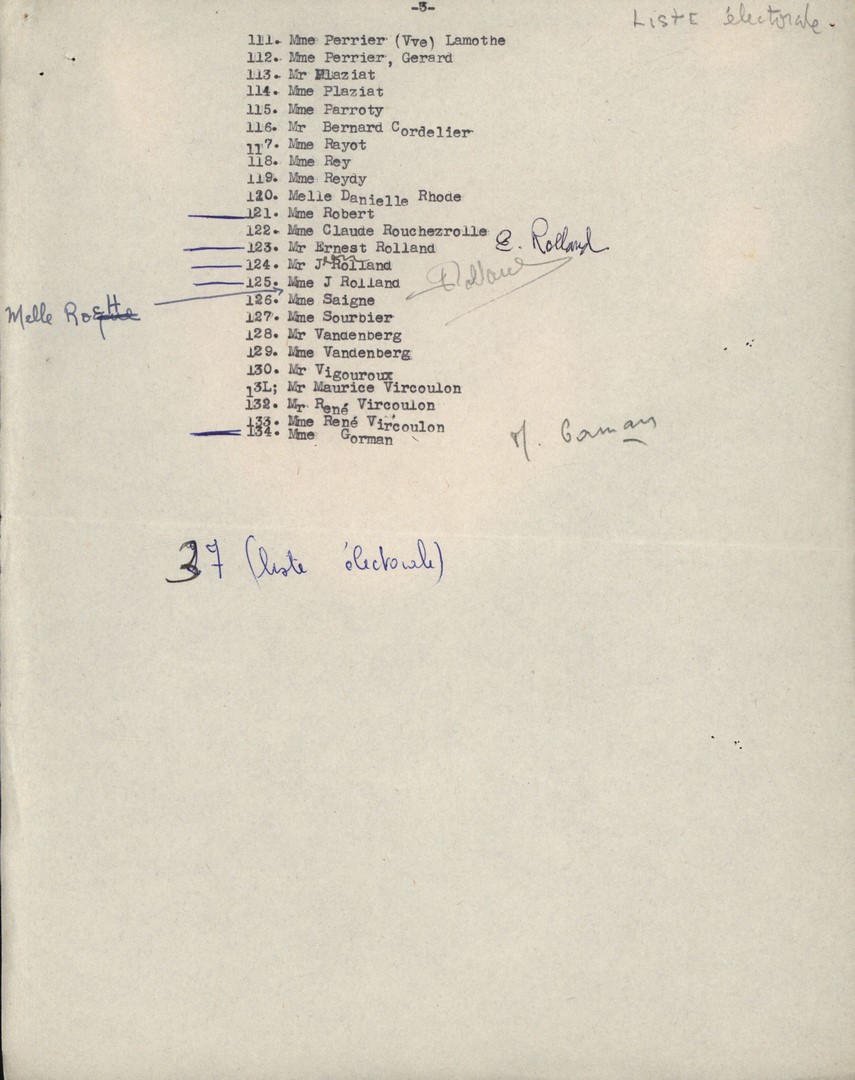 -3-
Liste électorale.
111. Mme Perrier (Vve) Lamothe
112. Mme Perrier, Gerard
113. Mr Plaziat
114. Mme Plaziat
115. Mme Parroty
116. Mr Bernard Cordelier
117. Mme Rayot
118. Mme Rey
119. Mme Reydy
120. Melle Danielle Rhode
121. Mme Robert
122. Mme Claude Rouchezrolle
123. Mr Ernest Rolland E. Rolland
124. Mr J Rolland
125. Mme J Rolland
Melle
126. Mme Saigne
127. Mme Sourbier
128. Mr Vandenberg
129. Mme Vandenberg
130. Mr Vigouroux
13L; Mr Maurice Vircoulon
132. Mr René Vircoulon
133. Mme René Vircoulon
134. Mme Gorman
M. Gorman
37 (liste électorale)